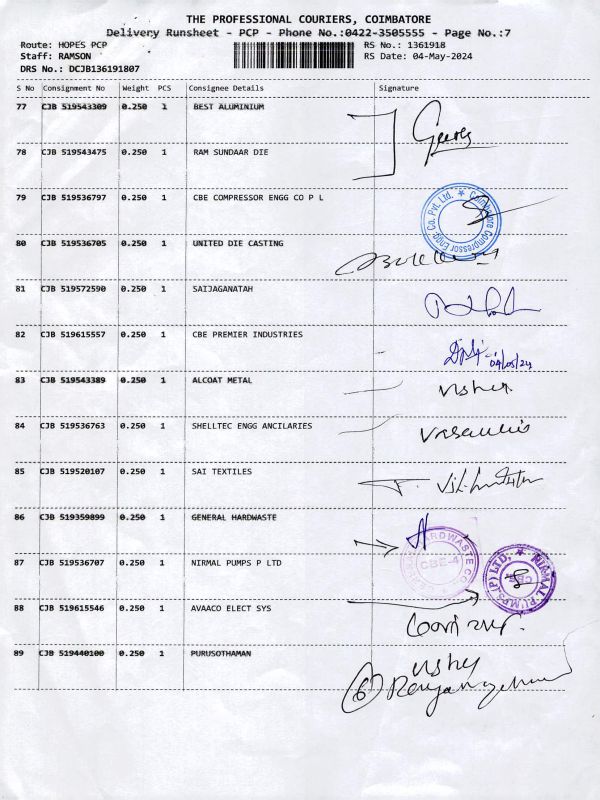 THE PROFESSIONAL COURIERS, COIMBATORE
Delivery Runsheet - PCP - Phone No.:0422-3505555 - Page No.:7
Route: HOPES PCP
RS No.: 1361918
Staff: RAMSON
RS Date: 04-May-2024
DRS No.: DCJB136191807
S No Consignment No Weight PCS Consignee Details Signature
77 CJB 519543309 0.250 1 BEST ALUMINIUM
78 CJB 519543475 0.250 1 RAM SUNDAAR DIE
79 CJB 519536797 0.250 1 CBE COMPRESSOR ENGG CO P L
Coimbatore Compressor Engg. Co. Pvt. Ltd.
80 CJB 519536705 0.250 1 UNITED DIE CASTING
81 CJB 519572590 0.250 1 SAIJAGANATAH
82 CJB 519615557 0.250 1 CBE PREMIER INDUSTRIES
04/05/24
83 CJB 519543389 0.250 1 ALCOAT METAL
Usha
84 CJB 519536763 0.250 1 SHELLTEC ENGG ANCILARIES
85 CJB 519520107 0.250 1 SAI TEXTILES
86 CJB 519359899 0.250 1 GENERAL HARDWASTE
HARDWASTE CO
CBE-4
87 CJB 519536707 0.250 1 NIRMAL PUMPS P LTD
NIRMAL PUMPS (P) LTD.
CBE
88 CJB 519615546 0.250 1 AVAACO ELECT SYS
89 CJB 519440100 0.250 1 PURUSOTHAMAN
6